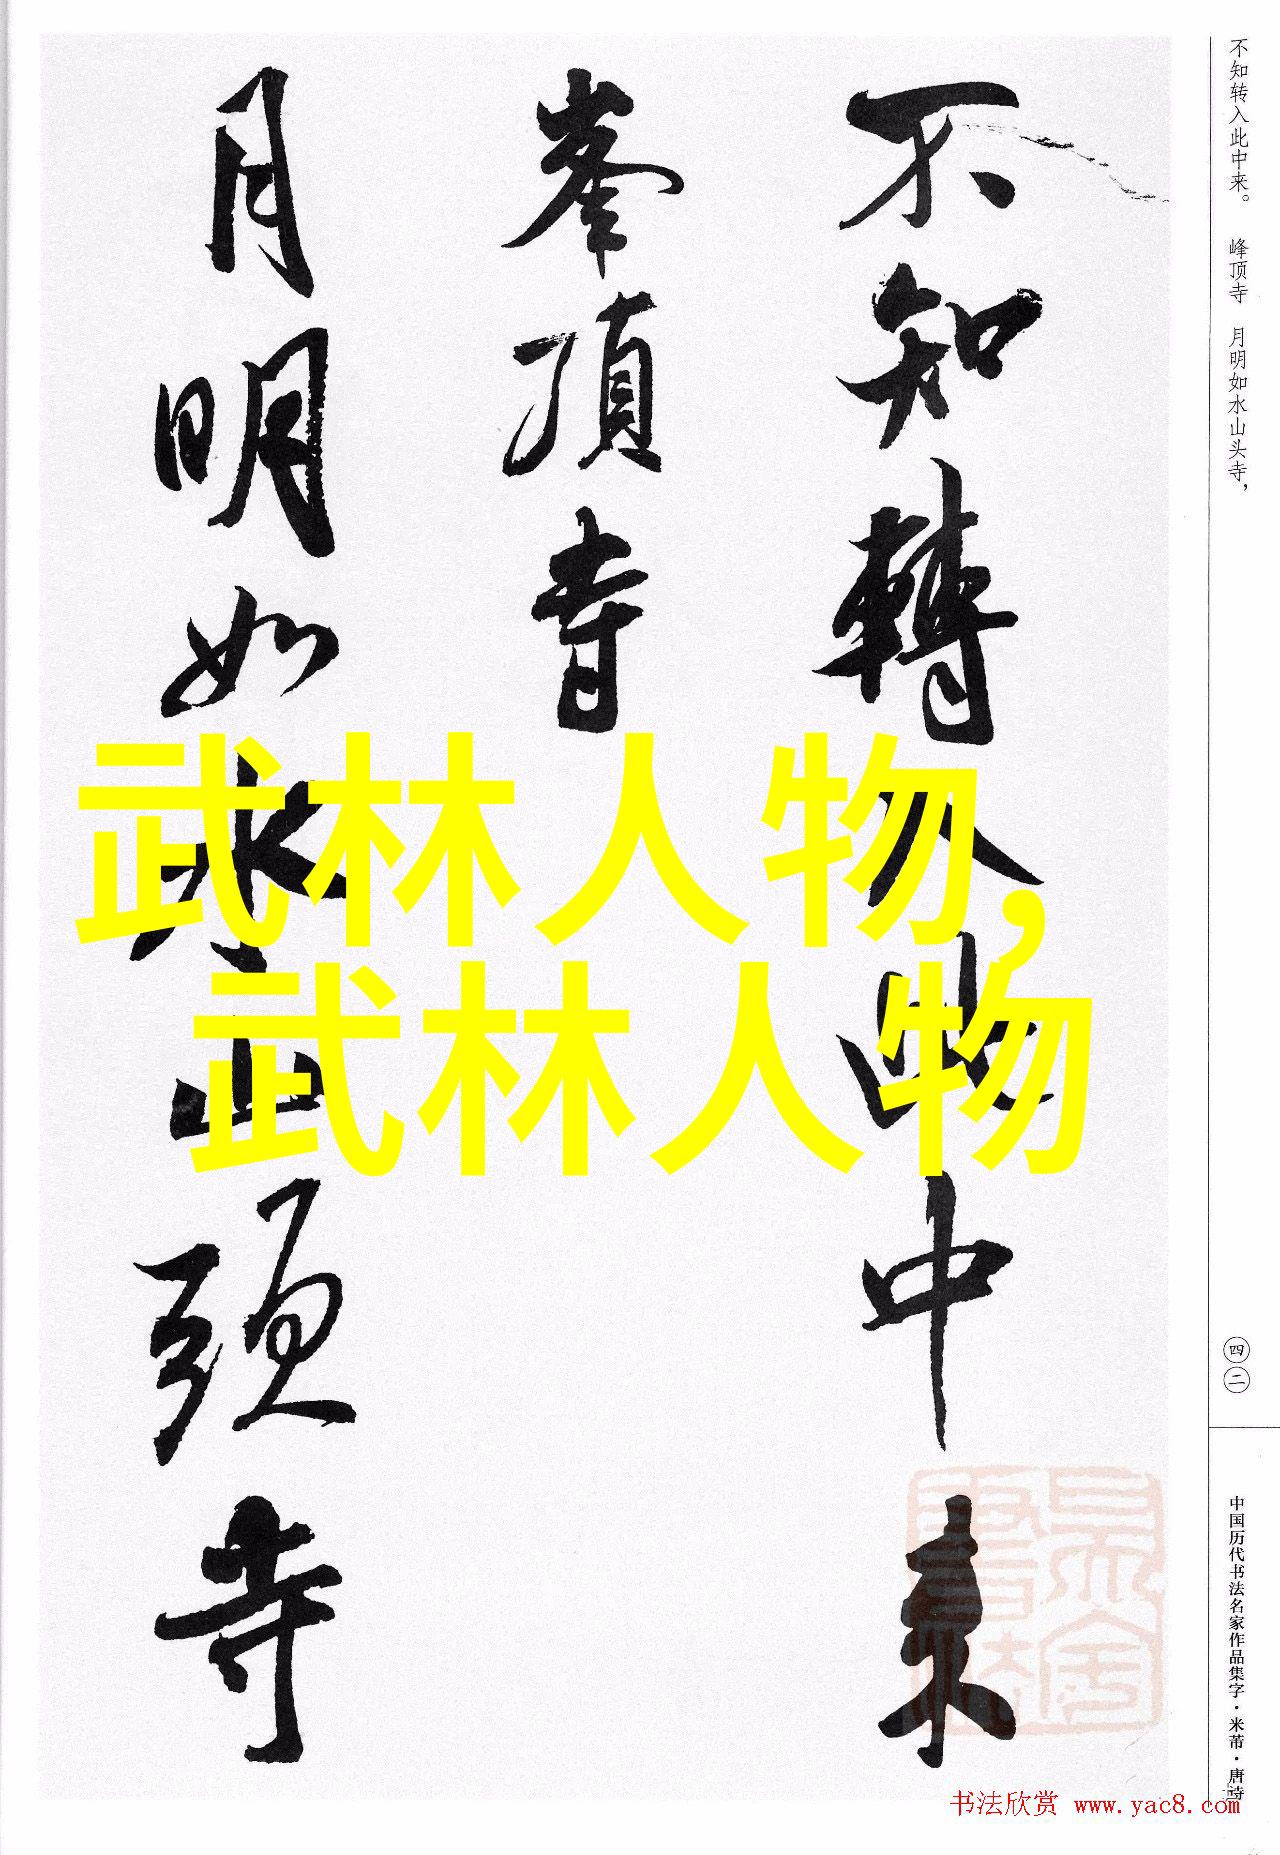 不知轉入此中来
峯頂寺
月明如水山頭寺
武林人物，
武林人物
不知转入此中来。 峰顶寺 月明如水山头寺，
四二
中国历代书法名家作品集字·米芾·唐诗
书法欣赏 www.yac8.com